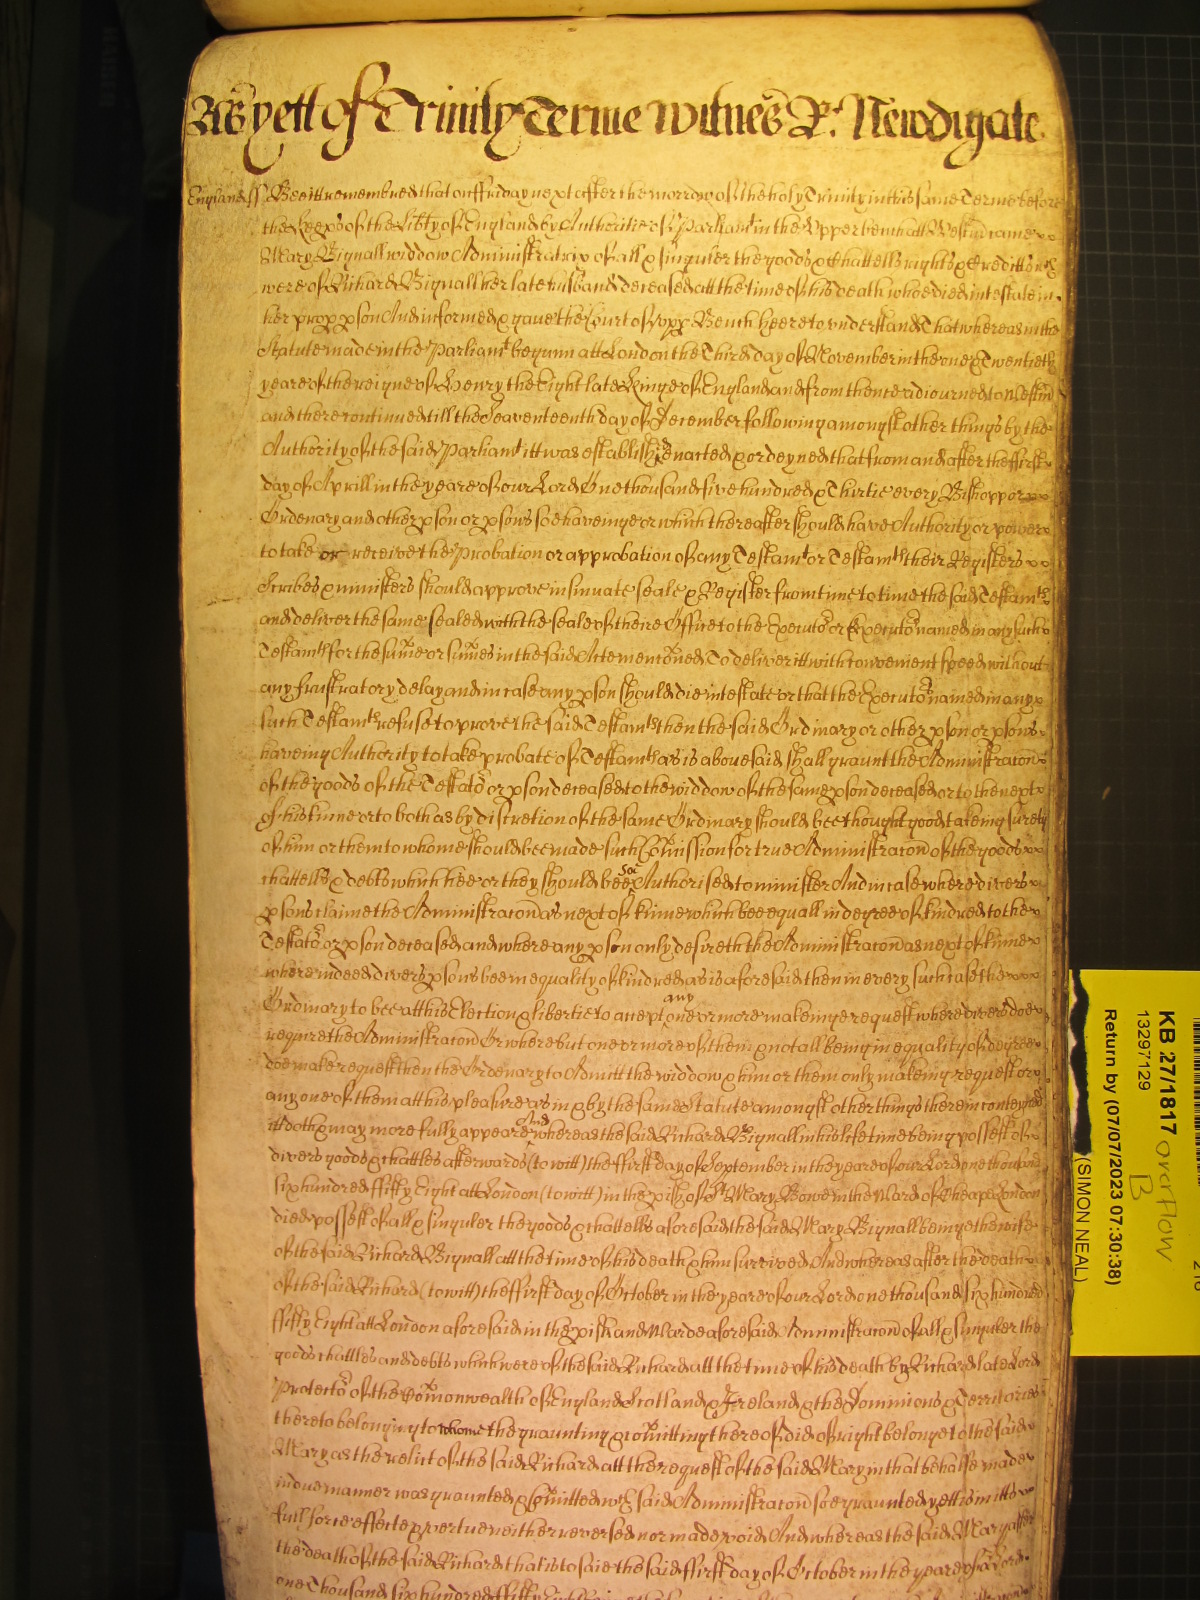 As yett of Trinity Terme witnes R: Newdigate
England ss Bee itt remembred that on ffriday next after the morrow of the holy Trinity in this same Terme before
the Keepers of the Libty of England by Authoritie of Parliamt in the Upper bench att Westm came
Mary Bignall widdow Administratrix of all & singuler the goods & Chattells rights & Creditts wch
were of Richard Bignall her late husband deceased att the time of his death whoe died intestate in
her prop pson And informed & gave the Court of Upp Bench heere to understand That whereas in the
Statute made in the Parliamt begunn att London the Third day of November in the one & Twentieth
yeare of the reigne of Henry the Eight late Kinge of England and from thence adiourned to Westm
and there continued till the Seaventeenth day of December following amongst other things by the
Authority of the said Parliamt itt was established enacted & ordeyned that from and after the ffirst
day of Aprill in the yeare of our Lord One thousand five hundred & Thirtie every Bishopp or
Ordenary and other pson or psons soe haveinge or which thereafter should have Authority or power
to take or receive the Probation or approbation of any Testamt or Testamts their Registers
Scribes & ministers should approve insinuate seale & Register from time to time the said Testamts
and deliver the same sealed with the seale of their Office to the Executor or Executors named in any such
Testamts for the sume or sumes in the said Acte menconed To deliver itt with convenient speed without
any frustratory delay and in case any pson should die intestate or that the Executors named in any
such Testamts refuse to prove the said Testamts then the said Ordinary or other pson or psons
haveing Authority to take probate of Testamts as is abovesaid shall graunt the Administracon
of the goods of the Testator or pson deceased to the widdow of the same pson deceased or to the next
of his kinne or to both as by discretion of the same Ordinary should bee thought good takeing surety
of him or them to whome should bee made such Comission for true Administracon of the goods
chattells & debts which hee or they should bee soe Authorised to minister And in case where divers
psons claime the Administracon as next of kinne which bee equall in degree of kindred to the
Testator or pson deceased and where any pson only desireth the Administracon as next of kinne
where indeed divers psons bee in equality of kindred as is aforesaid then in every such case the
Ordinary to bee att his Election & libertie to accept any one or more makeinge request where divers doe
require the Administracon Or where but one or more of them & not all being in equality of degree
doe make request then the Ordenary to Admitt the widdow & him or them only makeing request or
any one of them att his pleasure as in & by the same Statute amongst other things therein conteyned
itt doth & may more fully appeare And whereas the said Richard Bignall in his life time being possest of
divers goods & chattles afterwards (to witt) the ffirst day of September in the yeare of our Lord one thousand
six hundred ffifty Eight att London (to witt) in the pish of St Mary Bowe in the Ward of Cheape London
died possest of all & singuler the goods & chattells aforesaid the said Mary Bignall being the wife
of the said Richard Bignall att the time of his death & him survived And whereas after the death
of the said Richard (to witt) the ffirst day of October in the yeare of our Lord one thousand six hundred
ffifty Eight att London aforesaid in the pish and Warde aforesaid Administracon of all & singuler the
goods chattles and debts which were of the said Richard att the time of his death by Richard late Lord
Protector of the Comonwealth of England Scotland & Ireland & the Dominions & Territories
thereto belonging to whome the graunting & comitting thereof did of right belonge to the said
Mary as the relict of the said Richard att the request of the said Mary in that behalfe made
in due manner was graunted & Comitted wch said Administracon soe graunted yett is in itts
full force effecte & vertue neither reversed nor made void And whereas the said Mary after
the death of the said Richard that is to saie the said ffirst day of October in the yeare of our Lord
one Thousand six hundred ffifty Eight
KB 27/1817 overflow
B
13297129
Return by (07/07/2023 07:30:38)
(SIMON NEAL)